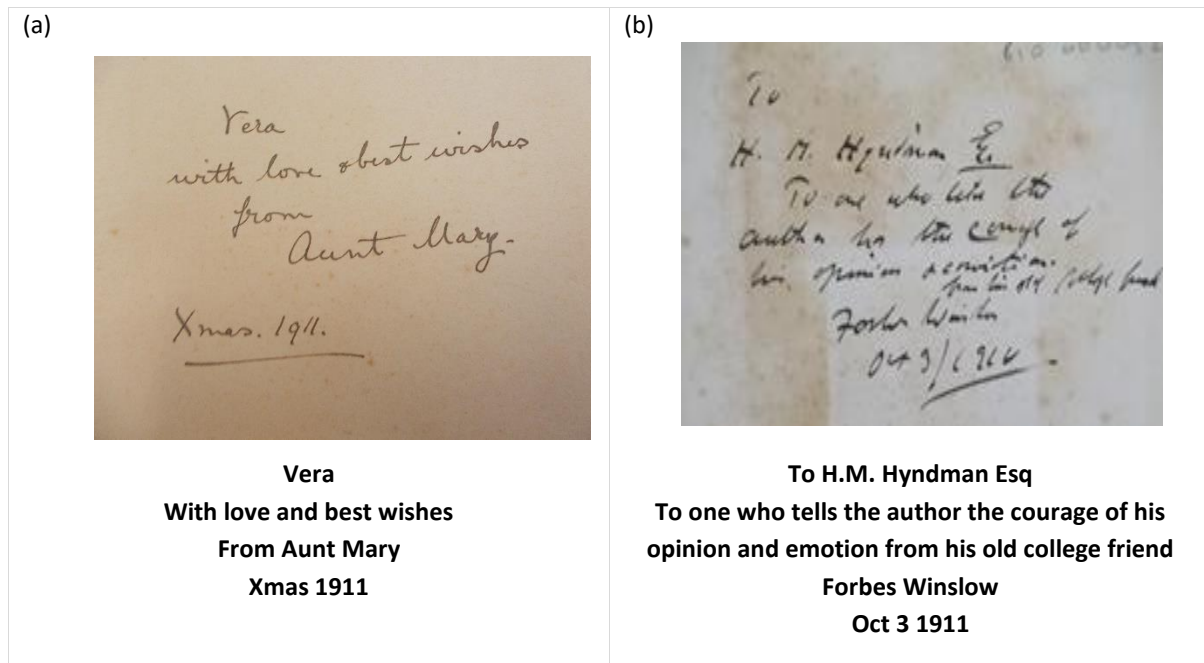 (a)
Vera
with love & best wishes
from
Aunt Mary.
Xmas. 1911.
Vera
With love and best wishes
From Aunt Mary
Xmas 1911
(b)
To
H. M. Hyndman Esq
To one who like the
author has the courage of
his opinion & conviction.
from his old college friend
Forbes Winslow
Oct 3/1910
To H.M. Hyndman Esq
To one who tells the author the courage of his
opinion and emotion from his old college friend
Forbes Winslow
Oct 3 1911